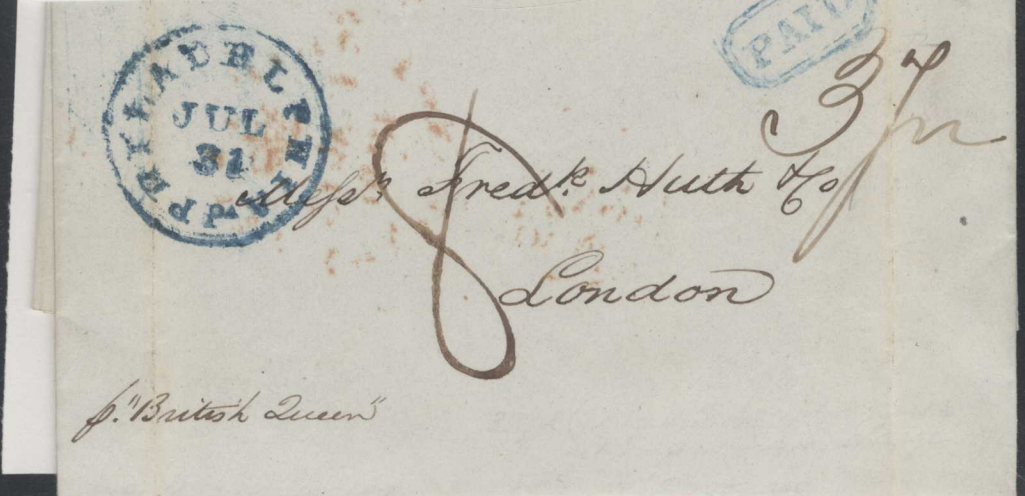 PHILADELPHIA Pa.
JUL
31
PAID
37½
8
Messrs Fredk Huth & Co
London
p. "British Queen"